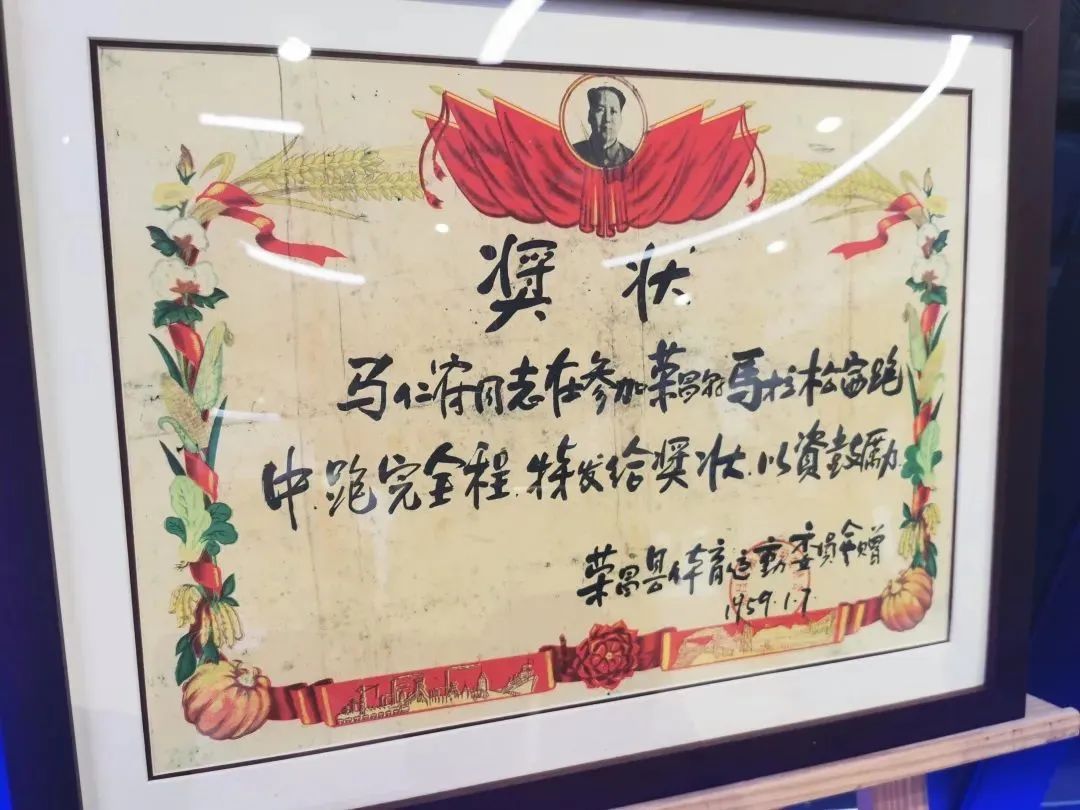 奖状
马仁府同志在参加荣昌县马拉松赛跑
中.跑完全程.特发给奖状.以资鼓励
荣昌县体育运动委员会赠
1959.1.7.